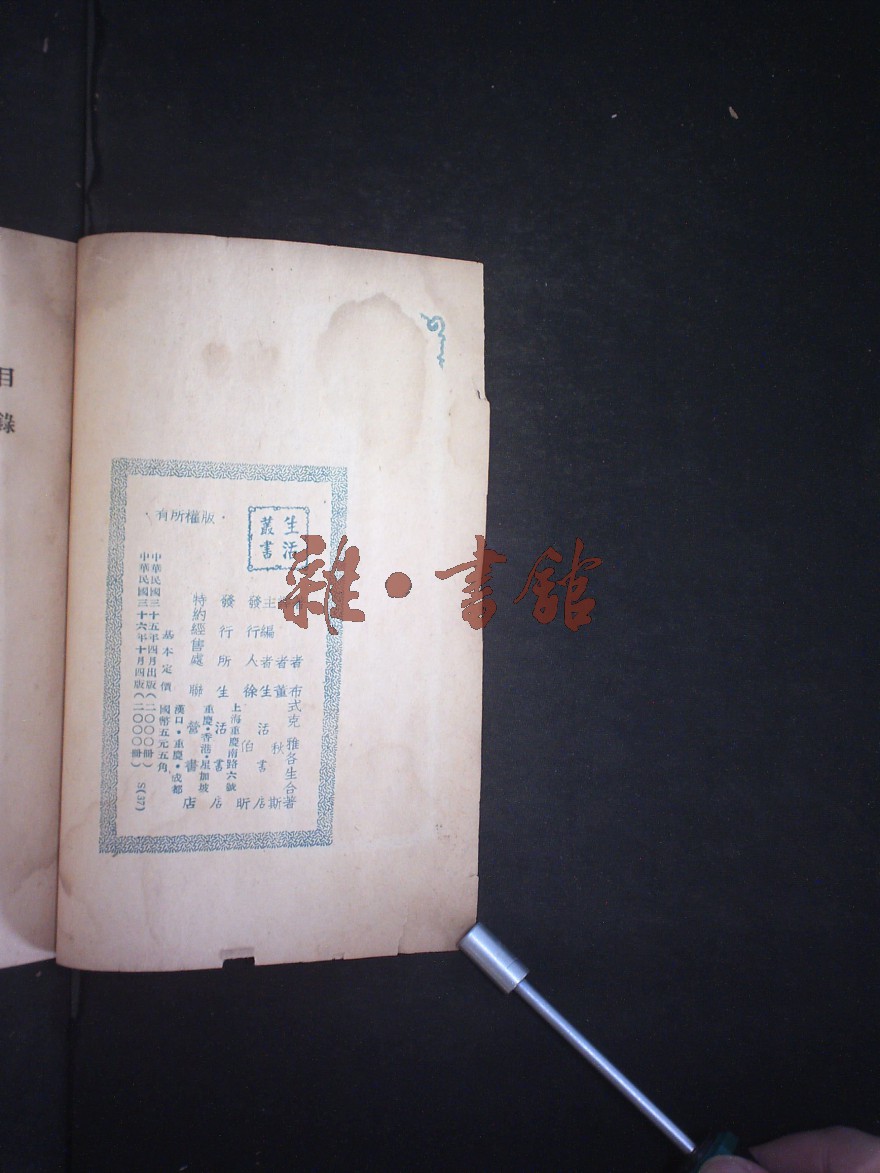 目錄
生活
叢書
·版權所有·
著者 布式克 雅各生合著
譯者 董秋斯
主編者 生活書店
發行人 徐伯昕
發行所 生活書店
上海重慶南路六號
重慶·香港·星加坡
特約經售處 聯營書店
漢口·重慶·成都
基本定價 國幣五元五角
中華民國三十五年四月出版(二〇〇〇冊)
中華民國三十六年十月四版(二〇〇〇冊) S(37)
雜·書館